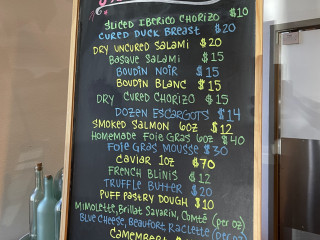 Sliced Iberico Chorizo $10
Cured Duck Breast $20
Dry Uncured Salami $20
Basque Salami $15
Boudin Noir $15
Boudin Blanc $15
Dry Cured Chorizo $15
Dozen Escargots $14
Smoked Salmon 6oz $12
Homemade Foie Gras 6oz $40
Foie Gras Mousse $30
Caviar 1oz $70
French Blinis $12
Truffle Butter $20
Puff Pastry Dough $10
Mimolette, Brillat Savarin, Comté (per oz)
Blue Cheese, Beaufort, Raclette (per oz)
Camembert